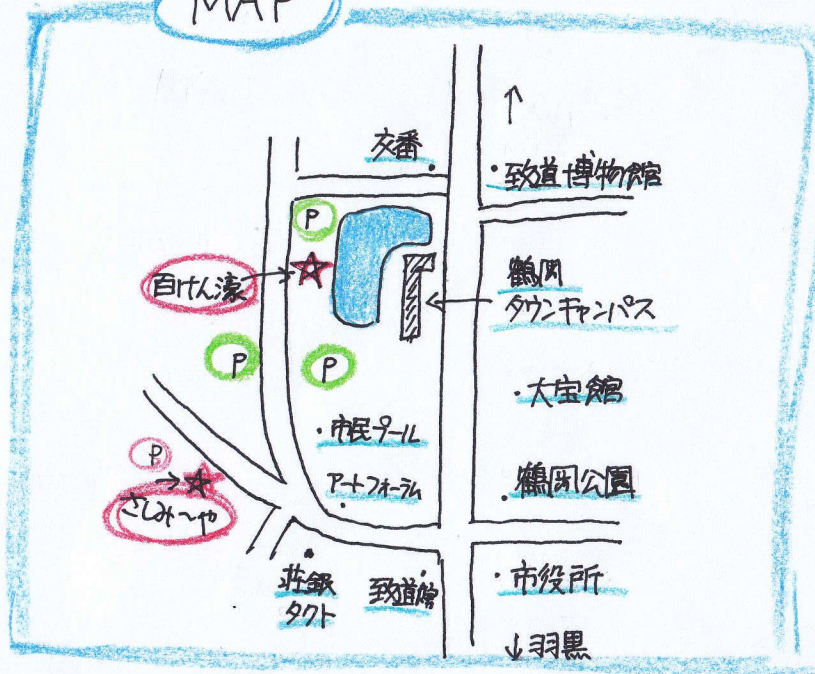 MAP
↑
交番
・致道博物館
P
百けん濠
鶴岡
タウンキャンパス
P
P
・大宝館
・市民プール
P
アートフォーラム
・鶴岡公園
さしみ〜や
荘銀
タクト
致道館
・市役所
↓羽黒